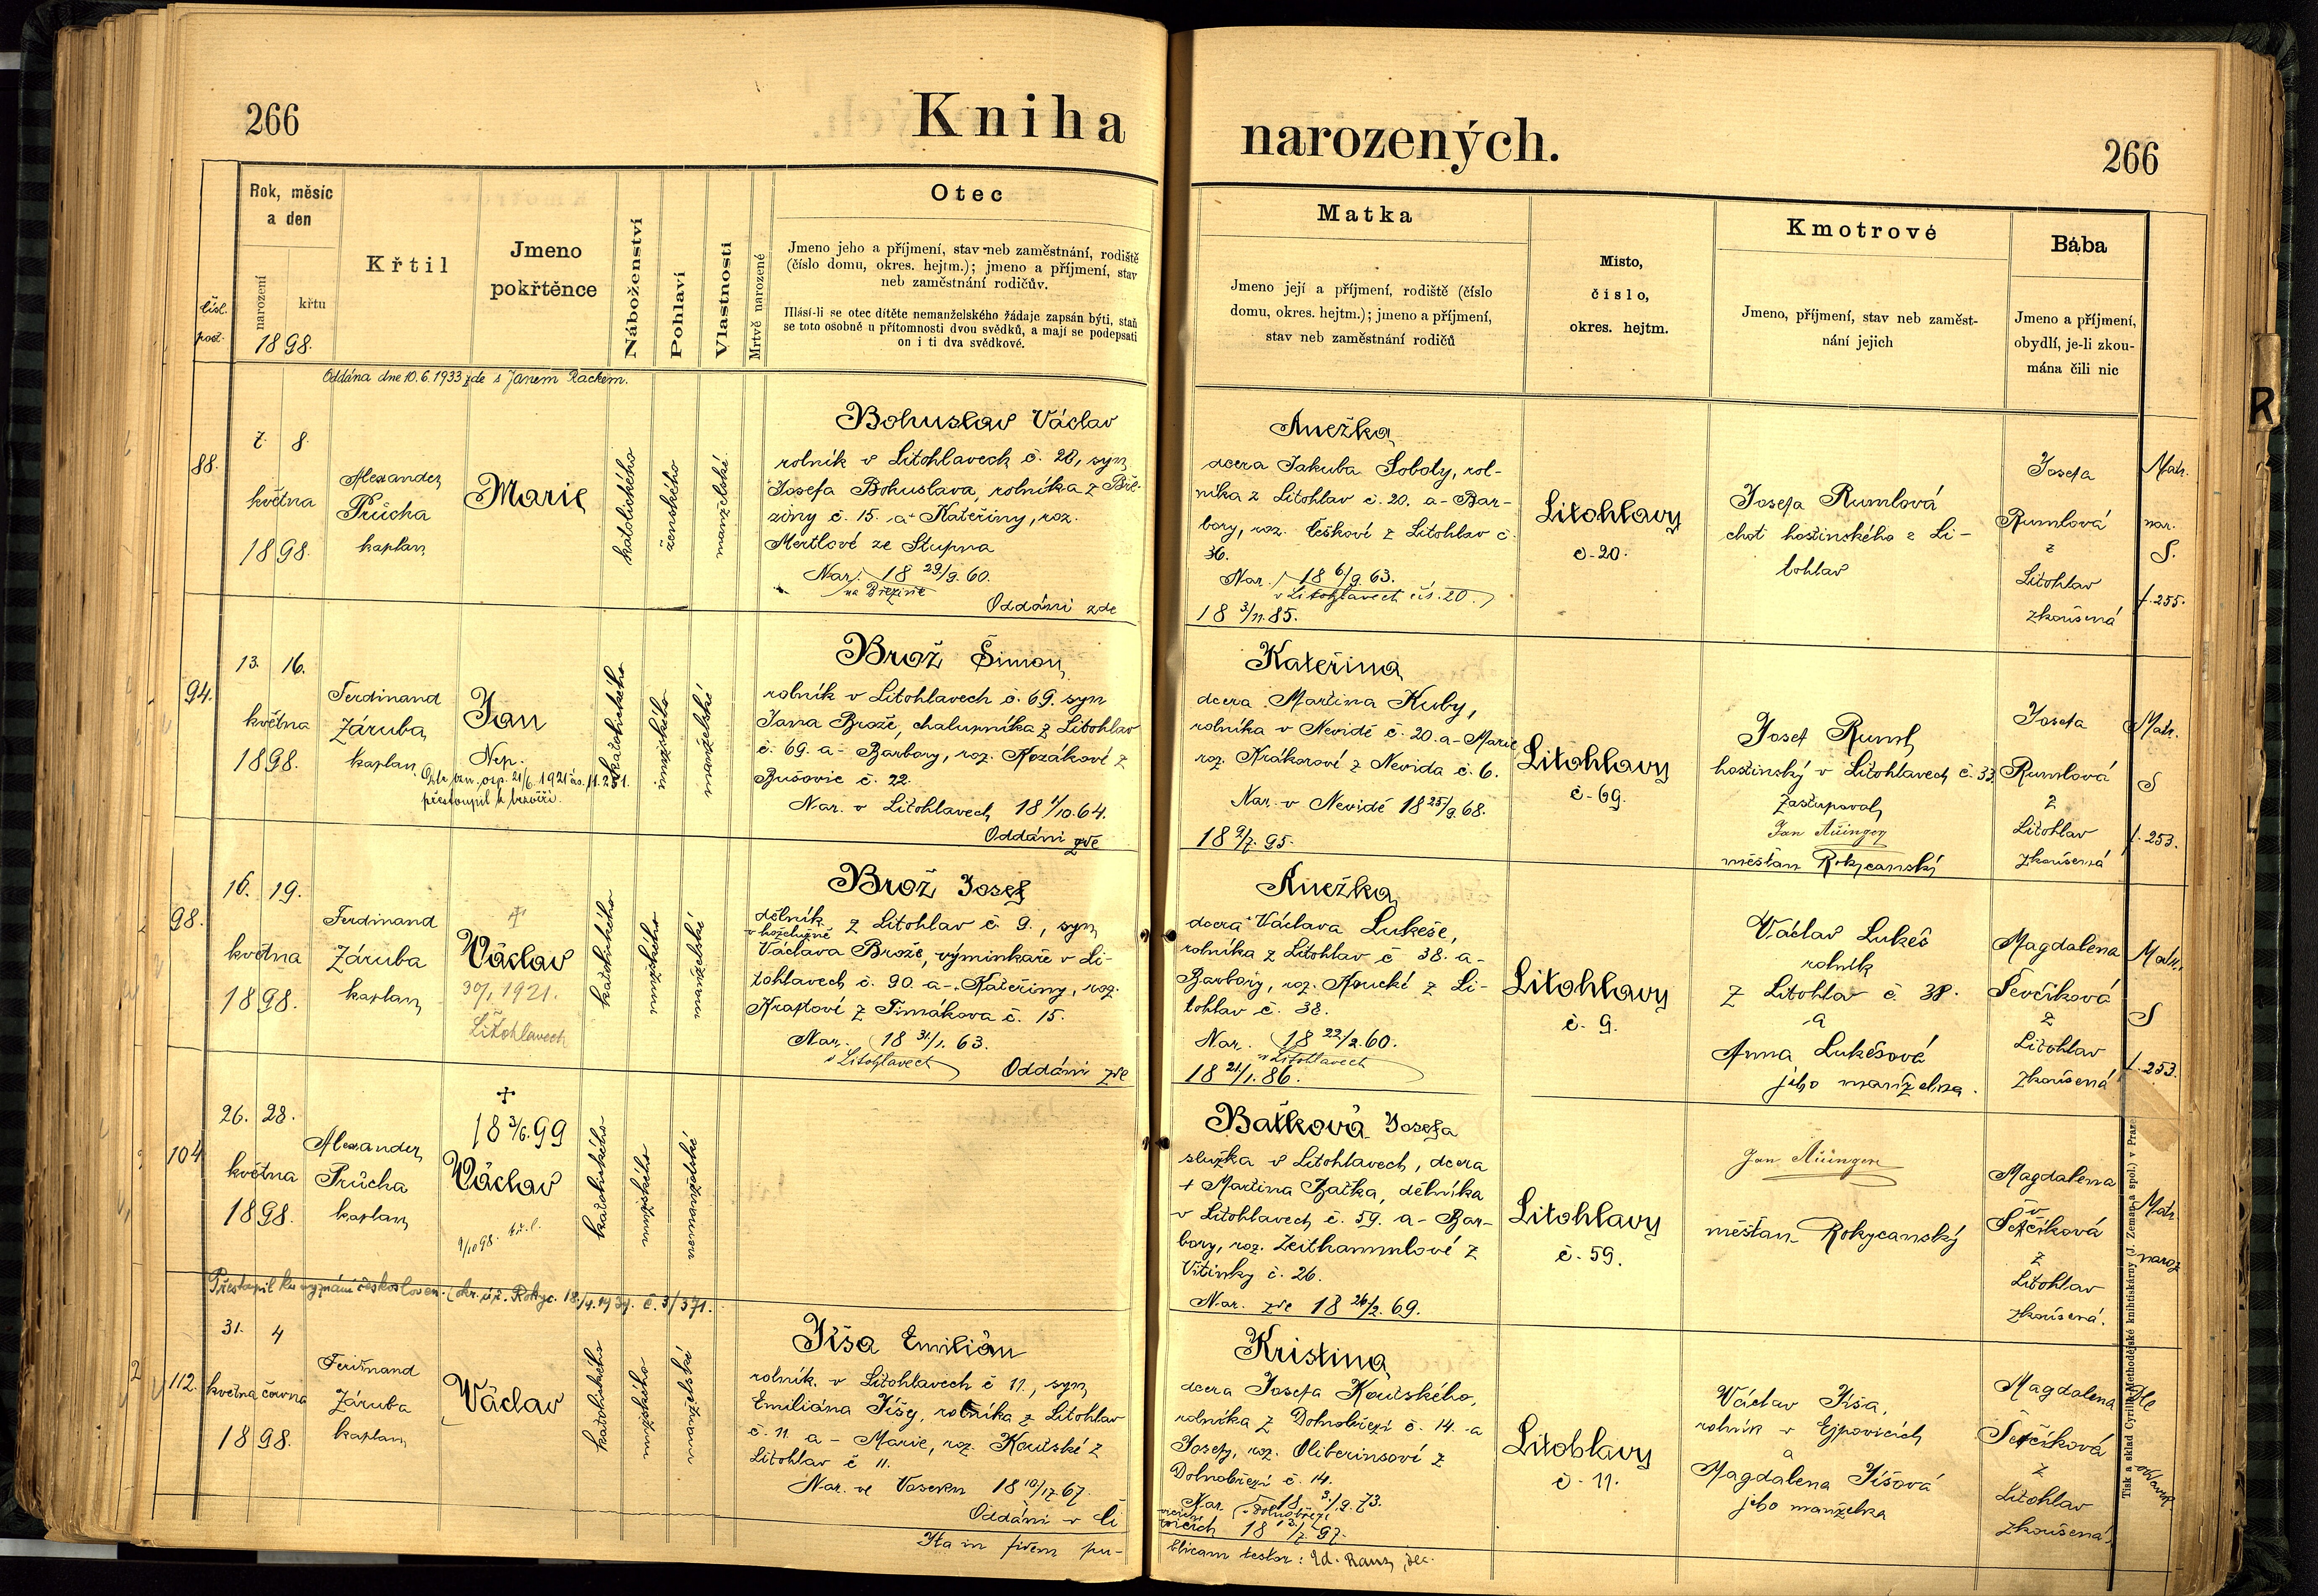 266
Kniha
narozených.
266
Rok, měsíc
a den
narození
křtu
1898.
čísl.
post.
Křtil
Jmeno
pokřtěnce
Náboženství
Pohlaví
Vlastnosti
Mrtvě narozené
Otec
Jmeno jeho a příjmení, stav neb zaměstnání, rodiště
(číslo domu, okres. hejtm.); jmeno a příjmení, stav
neb zaměstnání rodičův.
Hlásí-li se otec dítěte nemanželského žádaje zapsán býti, staň
se toto osobně u přítomnosti dvou svědků, a mají se podepsati
on i ti dva svědkové.
Matka
Jmeno její a příjmení, rodiště (číslo
domu, okres. hejtm.); jmeno a příjmení,
stav neb zaměstnání rodičů
Místo,
číslo,
okres. hejtm.
Kmotrové
Jmeno, příjmení, stav neb zaměst-
nání jejich
Bába
Jmeno a příjmení,
obydlí, je-li zkou-
mána čili nic
R
Oddána dne 10.6.1933 zde s Janem Rackem.
88.
7. 8.
května
1898.
Alexander
Průcha
kaplan
Marie
katolického
ženského
manželské
Bohuslav Václav
rolník v Litohlavech č. 20, syn
Josefa Bohuslava, rolníka z Bře-
ziny č. 15. a Kateřiny, roz.
Mertlové ze Stupna
Nar. 18 29/9. 60.
na Březině
Oddáni zde
Anežka
dcera Jakuba Soboly, rol-
níka z Litohlav č. 20. a Bar-
bory, roz. Ceškové z Litohlav č.
36.
Nar. 18 6/9. 63.
v Litohlavech čís. 20.
18 3/11. 85.
Litohlavy
č. 20.
Josefa Rumlová
choť hostinského z Li-
tohlav
Josefa
Rumlová
z
Litohlav
zkoušená
Matr.
nar.
S.
f. 255.
94.
13. 16.
května
1898.
Ferdinand
Záruba
kaplan
Jan
Nep.
přestoupil k bezvěří.
katolického
mužského
manželské
Brož Šimon
rolník v Litohlavech č. 69. syn
Jana Brože, chalupníka z Litohlav
č. 69. a Barbory, roz. Kozákové z
Bušovic č. 22.
Nar. v Litohlavech 18 1/10. 64.
Oddáni zde
Kateřina
dcera Martina Kuby,
rolníka v Nevidě č. 20. a Marie
roz. Krákorové z Nevida č. 6.
Nar. v Nevidě 18 25/9. 68.
18 2/7. 95.
Litohlavy
č. 69.
Josef Ruml
hostinský v Litohlavech č. 33
zastupoval
Jan
měšťan Rokycanský
Josefa
Rumlová
z
Litohlav
zkoušená
Matr.
S
f. 253.
98.
16. 19.
května
1898.
Ferdinand
Záruba
kaplan
†
Václav
30/1 1921.
Litohlavech
katolického
mužského
manželské
Brož Josef
dělník z Litohlav č. 9., syn
v koželužně
Václava Brože, výminkaře v Li-
tohlavech č. 90. a Kateřiny, roz.
Kraftové z Timákova č. 15.
Nar. 18 31/1. 63.
v Litohlavech
Oddáni zde
Anežka
dcera Václava Lukeše,
rolníka z Litohlav č. 38. a
Barbory, roz. Koucké z Li-
tohlav č. 38.
Nar. 18 22/2. 60.
v Litohlavech
18 21/1. 86.
Litohlavy
č. 9.
Václav Lukeš
rolník
z Litohlav č. 38.
a
Anna Lukešová
jeho manželka.
Magdalena
Ševčíková
z
Litohlav
zkoušená
Matr.
S
f. 253.
104
26. 28.
května
1898.
Alexander
Průcha
kaplan
†
18 3/6. 99
Václav
katolického
mužského
nemanželské
Baťková Josefa
služka v Litohlavech, dcera
† Martina Baťka, dělníka
v Litohlavech č. 59. a Bar-
bory, roz. Zeithammlové z
Vitinky č. 26.
Nar. zde 18 26/2. 69.
Litohlavy
č. 59.
Jan
měšťan Rokycanský
Magdalena
Ševčíková
z
Litohlav
zkoušená.
Matr.
naroz
Přestoupil ku vyznání českosloven. (okr. úř. Rokyc. 18./4.1934. č. 3/371.
112.
31. 4
května června
1898.
Ferdinand
Záruba
kaplan
Václav
katolického
mužského
manželské
Jíša Emilián
rolník v Litohlavech č 11., syn
Emiliána Jíšy, rolníka z Litohlav
č. 11 a Marie, roz. Koutské z
Litohlav č 11.
Nar. ve Voseku 18 10/12. 67.
Oddáni v Ú-
Ita in fidem pu-
Kristina
dcera Josefa Koutského,
rolníka z Dolnobřezí č. 14. a
Josefy, roz. Oliberinsoví z
Dolnobřezí č. 14.
Nar. 18 3/9. 73.
v Dolnobřezí
blicam testor: Ed. Raus, děk.
Litohlavy
č. 11.
Václav Jíša,
rolník v Ejpovicích
a
Magdalena Jíšová
jeho manželka
Magdalena
Ševčíková
z
Litohlav
zkoušená
Dle
Tisk a sklad Cyrillo-Methodějské knihtiskárny (J. Zeman a spol.) v Praze